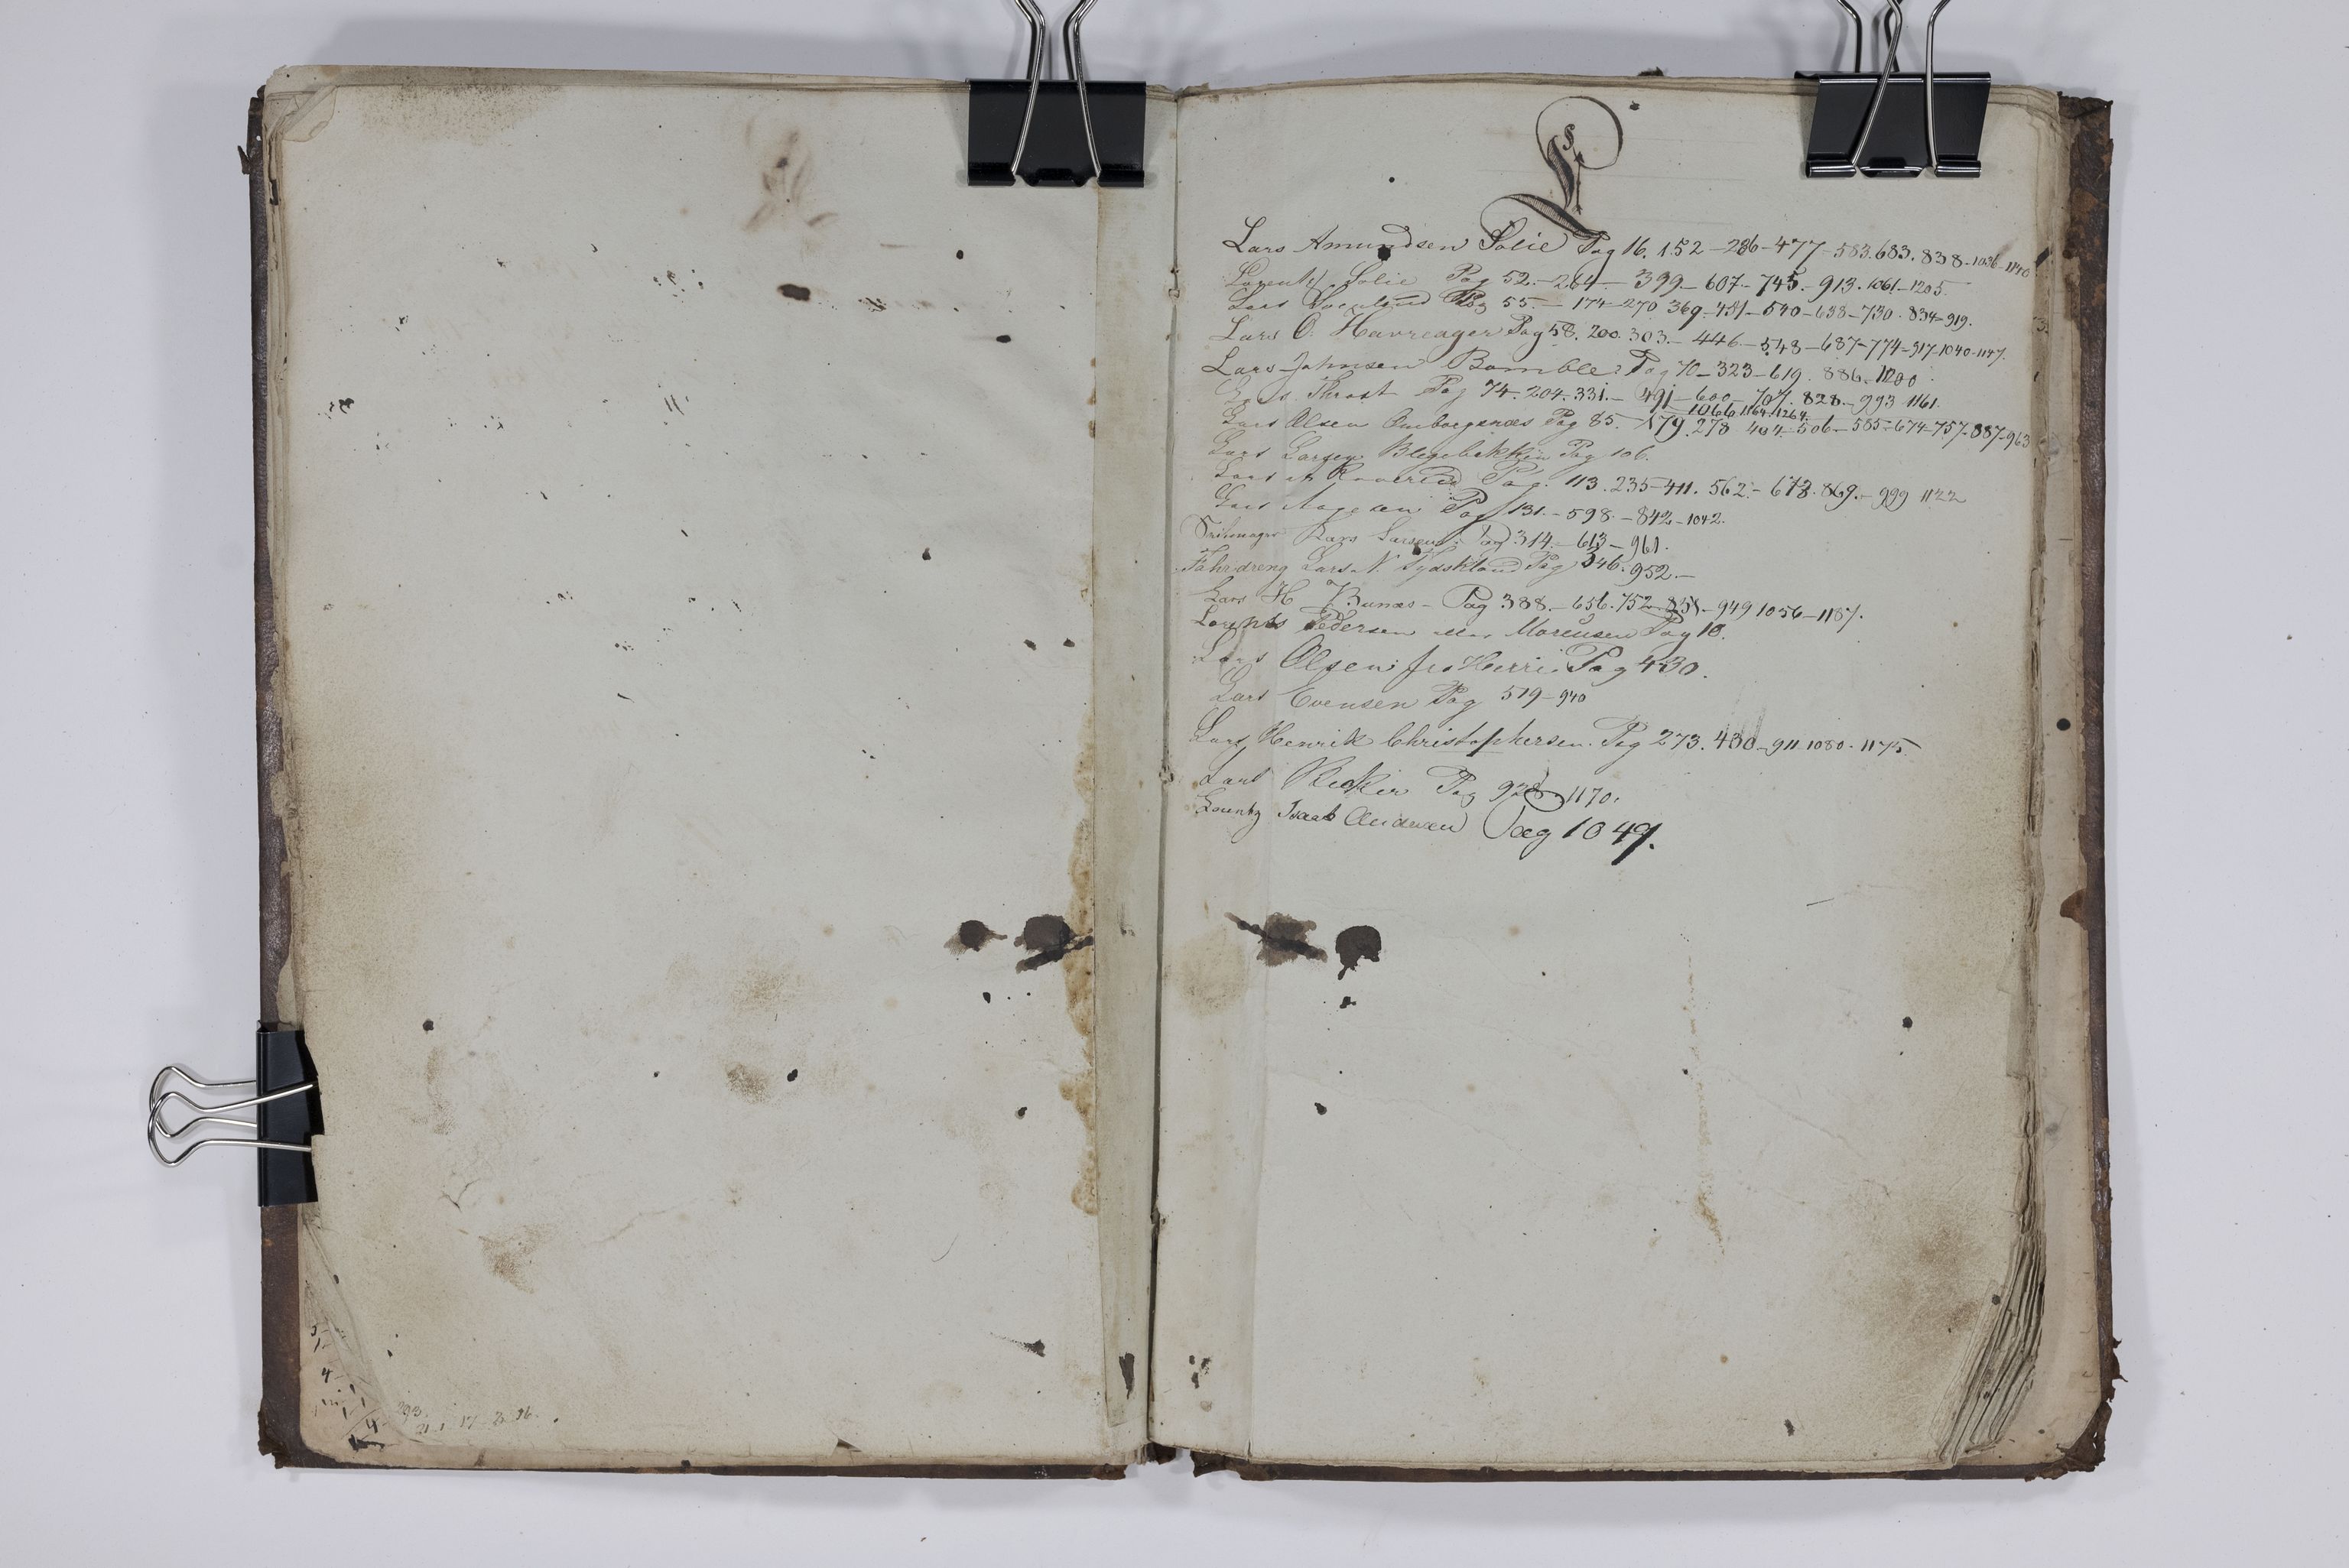 L
Lars Amundsen Solie Pag 16. 152-286-477-583.683.838-1036-1140
Lorentz Solie Pag 52.-264-399-607-745-913.1061-1205
Lars Pag 55.-174-270 369-451-540-638-730.834-919.
Lars O. Havreager Pag 58.200.303.-446-548-687-774-917-1040-1147.
Lars Johnsen Bamble Pag 70-323-619.886.1200.
Lars Throst Pag 74.204.331.-491-600-707.828.-993 1161.
1066.1164.1264.
Lars Olsen Pag 85.-179.278 404-506-585-674-757-887-963
Lars Larsen Pag 106.
Lars Pag. 113.235-411.562.-673.869.-999 1122
Lars Aagesen Pag 131.-598.-842-1042.
Lars Larsen Pag 314.-613-961.
Lars N. Tydskland Pag 346.952.-
Lars H Bunæs-Pag 388.-656.752.858.-949 1056-1187.
Lorents Pedersen Pag 10.
Lars Olsen Pag 430.
Lars Evensen Pag 519-940
Lars Henrik Christophersen. Pag 273.430-911.1080.1175.
Lars Pag 938-1170.
Isaak Pag 1049.
4
293.